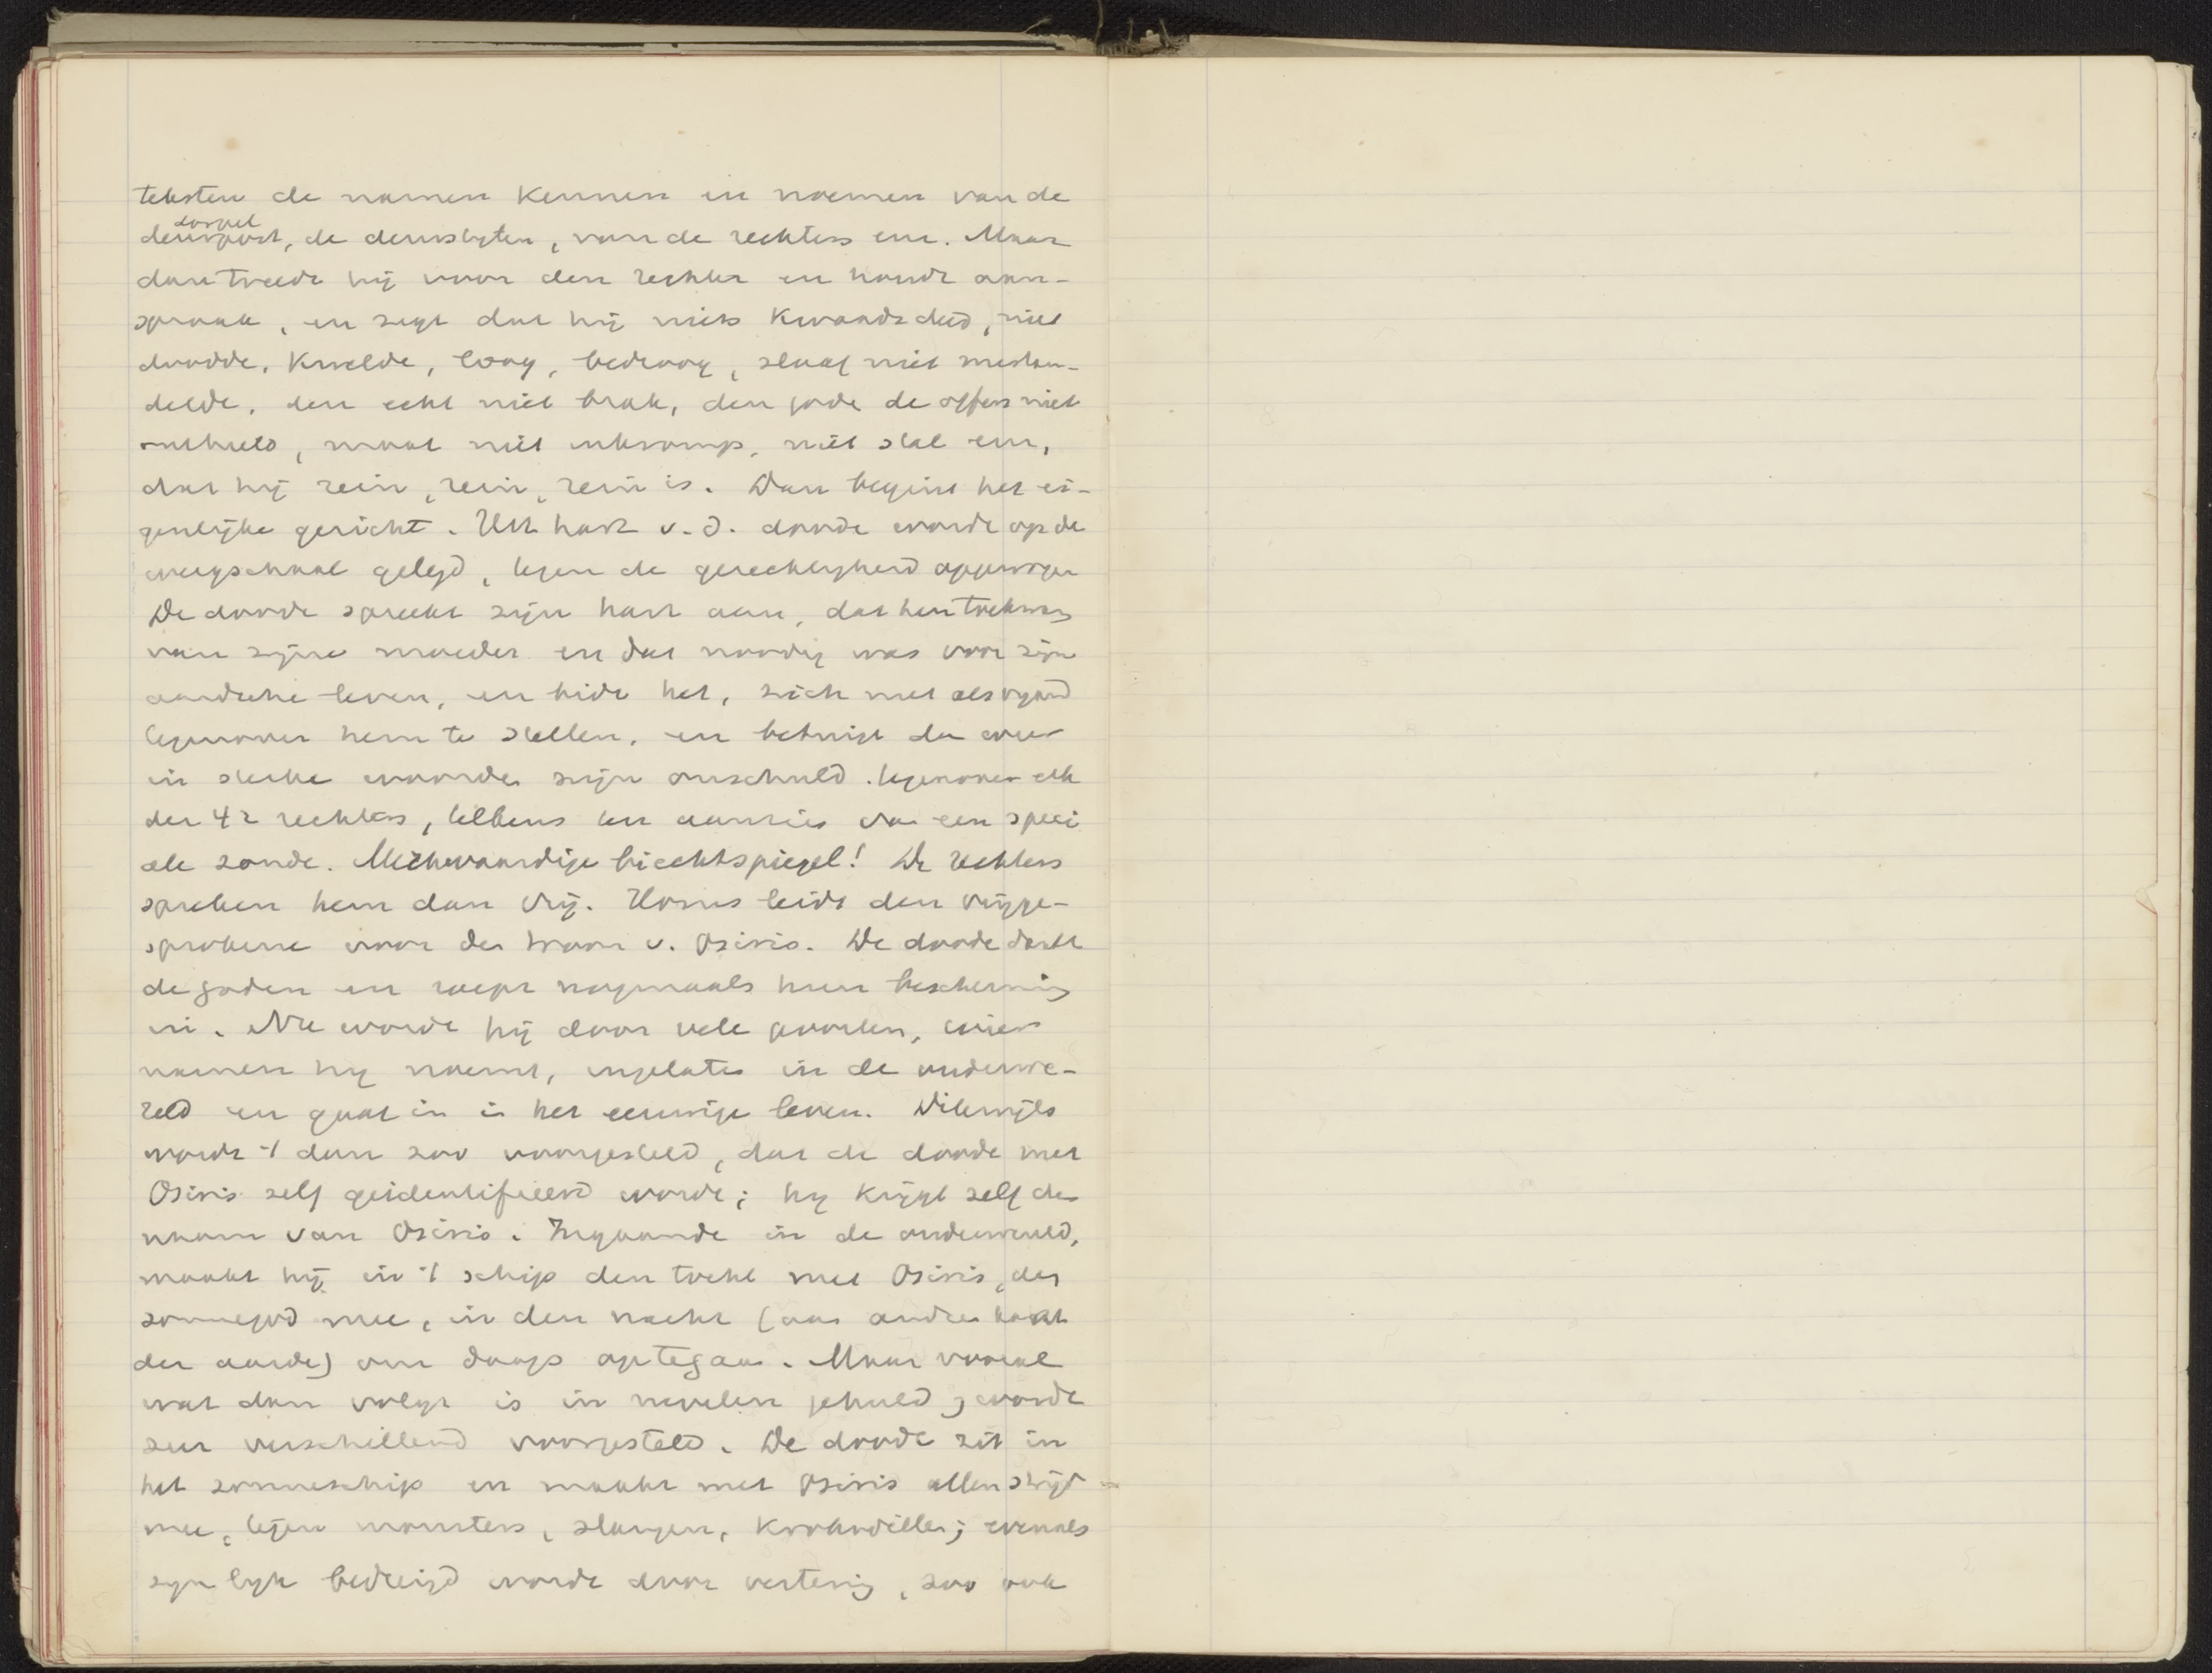 teksten de namen kennen en noemen van de
dorpel
deurpost, de deursloten, van de rechters enz. Maar
dan treedt hij voor den rechter en houdt aan-
spraak, en zegt dat hij niets kwaads deed, niet
doodde, kwelde, loog, bedroog, slaaf niet mishan-
delde, den echt niet brak, den gode de offers niet
onthield, maat niet inkromp, niet stal enz,
dat hij rein, rein, rein is. Dan begint het ei-
genlijke gericht. Het hart v. d. doode wordt op de
weegschaal gelegd, tegen de gerechtigheid opgewogen
De doode spreekt zijn hart aan, dat hem toekwam
van zijne moeder en dat noodig was voor zijn
aardsche leven, en bidt het, zich niet als vijand
tegenover hem te stellen, en betuigt dan weer
in sterke woorden zijn onschuld. tegenover elk
der 42 rechters, telkens ten aanzien van een speci
ale zonde. Merkwaardige biechtspiegel! De rechters
spreken hem dan vrij. Horus leidt den vrijge-
sprokene voor den troon v. Osiris. De doode dankt
de goden en roept nogmaals hun bescherming
in. Nu wordt hij door vele poorten, wier
namen hij noemt, ingelaten in de onderwe-
reld en gaat in in het eeuwige leven. Dikwijls
wordt 't dan zoo voorgesteld, dat de doode met
Osiris zelf geidentifieerd wordt; hij krijgt zelf den
naam van Osiris. Ingaande in de onderwereld,
maakt hij in 't schip den tocht met Osiris, den
zonnegod mee, in den nacht (aan andren kant
der aarde) om daags op te gaan. Maar vooral
wat dan volgt is in nevelen gehuld, wordt
zeer verschillend voorgesteld. De doode zit in
het zonneschip en maakt met Osiris allen strijd
mee, tegen monsters, slangen, krokodillen; evenals
zijn lijk bedreigd wordt door vertering, zoo ook